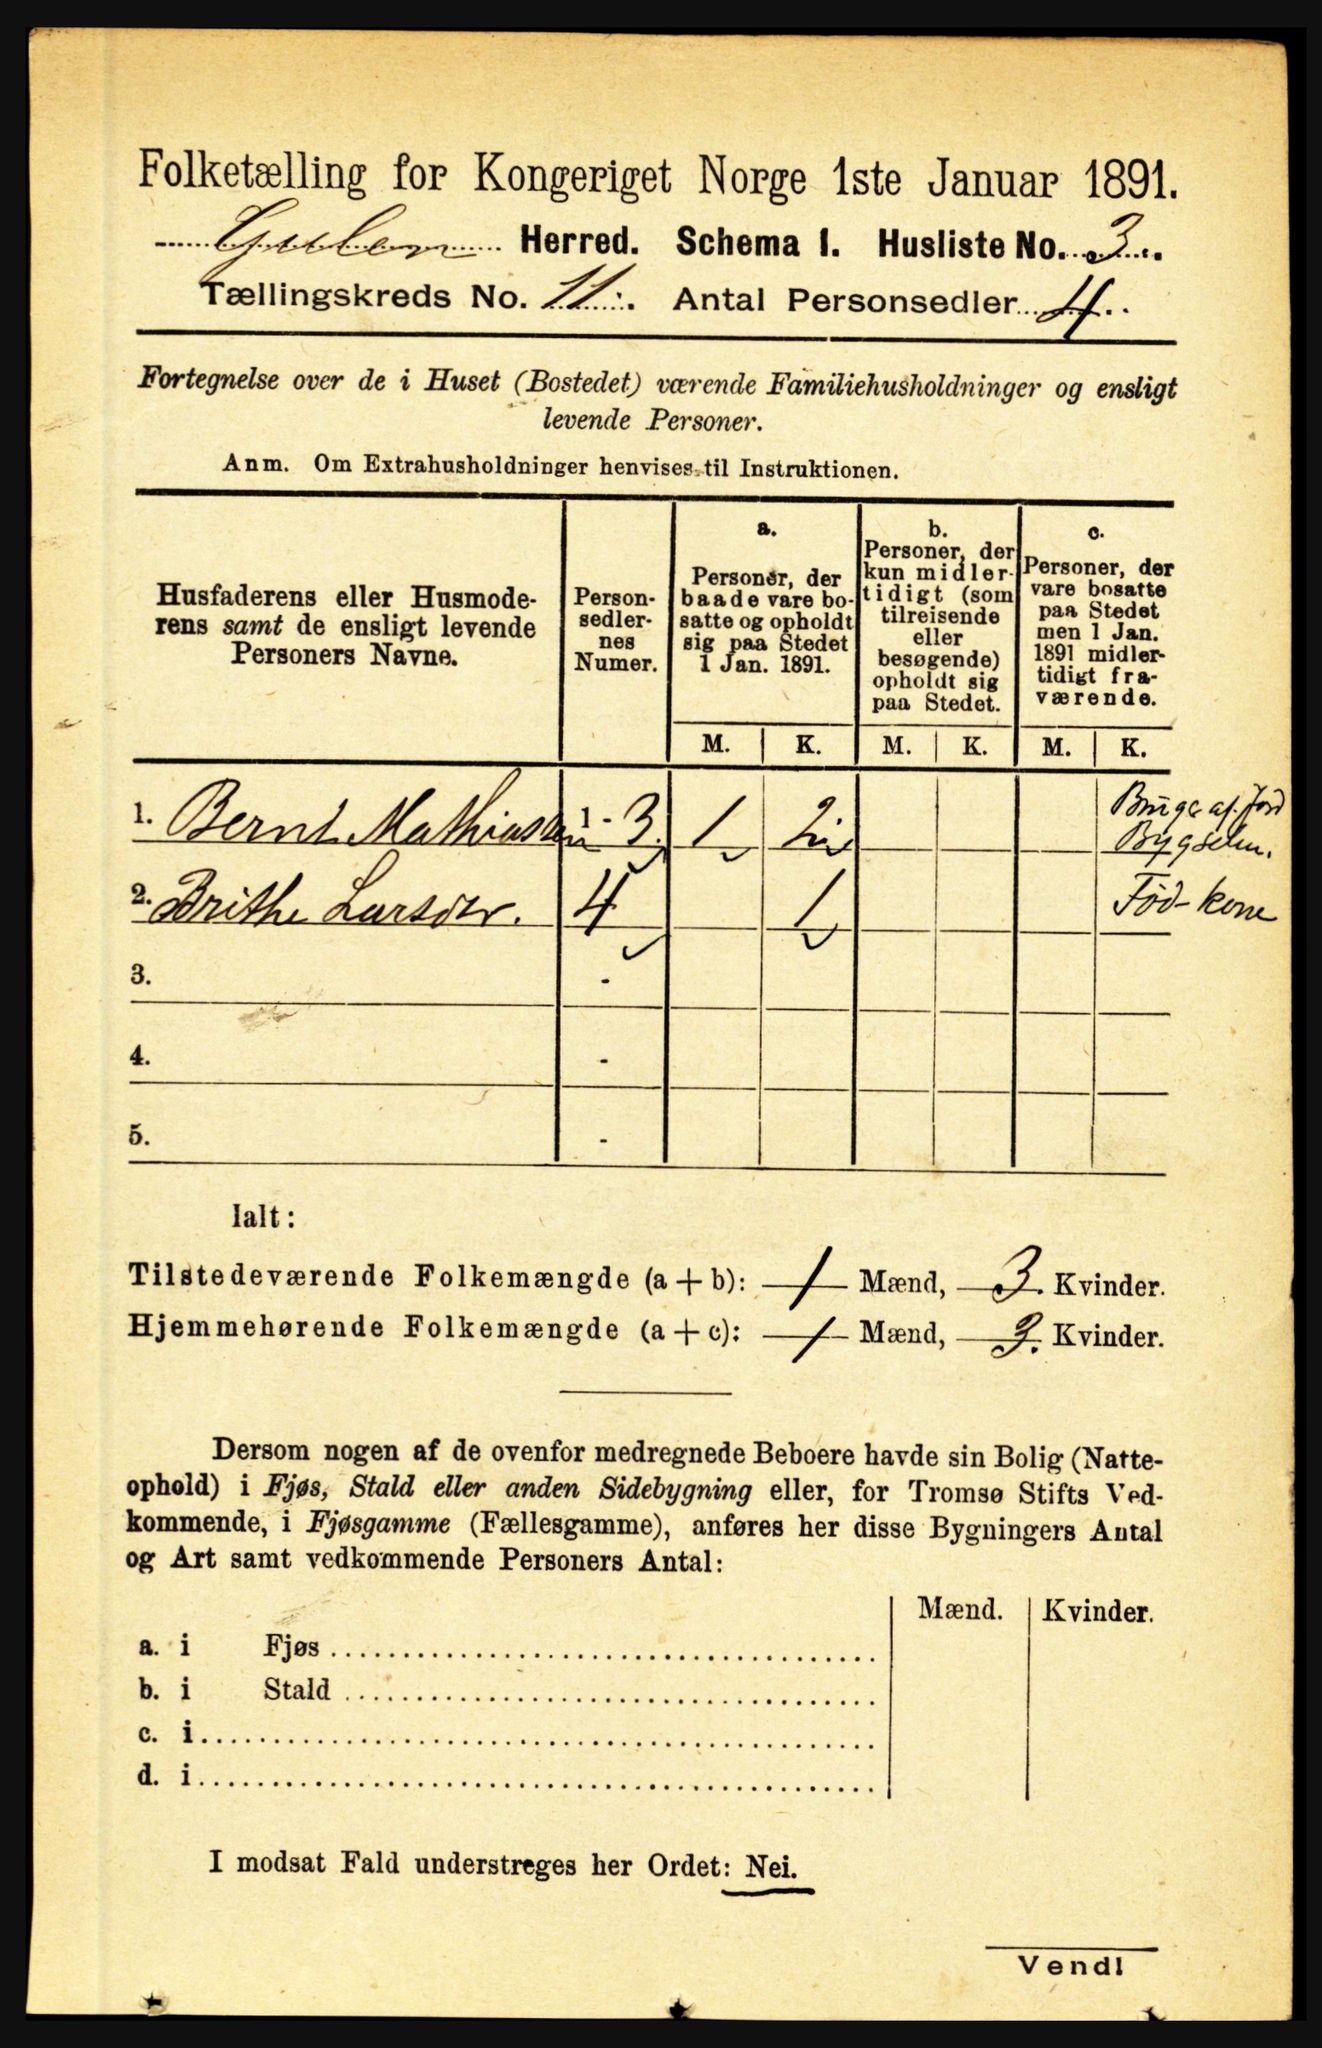 Folketælling for Kongeriget Norge 1ste Januar 1891.
Gulen Herred. Schema I. Husliste No. 3.
Tællingskreds No. 11. Antal Personsedler 4.
Fortegnelse over de i Huset (Bostedet) værende Familiehusholdninger og ensligt
levende Personer.
Anm. Om Extrahusholdninger henvises til Instruktionen.
Husfaderens eller Husmode-
rens samt de ensligt levende
Personers Navne.
Person-
sedler-
nes
Numer.
a.
Personer, der
baade vare bo-
satte og opholdt
sig paa Stedet
1 Jan. 1891.
b.
Personer, der
kun midler-
tidigt (som
tilreisende
eller
besøgende)
opholdt sig
paa Stedet.
c.
Personer, der
vare bosatte
paa Stedet
men 1 Jan.
1891 midler-
tidigt fra-
værende.
M. K. M. K. M. K.
1. Bernt Mathiassen 1-3. 1 2 Brug af Jord
Bygselm.
2. Brithe Larsdtr. 4 1 Fød-kone
3. -
4. -
5. -
Ialt:
Tilstedeværende Folkemængde (a + b): 1 Mænd, 3. Kvinder.
Hjemmehørende Folkemængde (a + c): 1 Mænd, 3. Kvinder.
Dersom nogen af de ovenfor medregnede Beboere havde sin Bolig (Natte-
ophold) i Fjøs, Stald eller anden Sidebygning eller, for Tromsø Stifts Ved-
kommende, i Fjøsgamme (Fællesgamme), anføres her disse Bygningers Antal
og Art samt vedkommende Personers Antal:
Mænd. Kvinder.
a. i Fjøs
b. i Stald
c. i
d. i
I modsat Fald understreges her Ordet: Nei.
Vend!